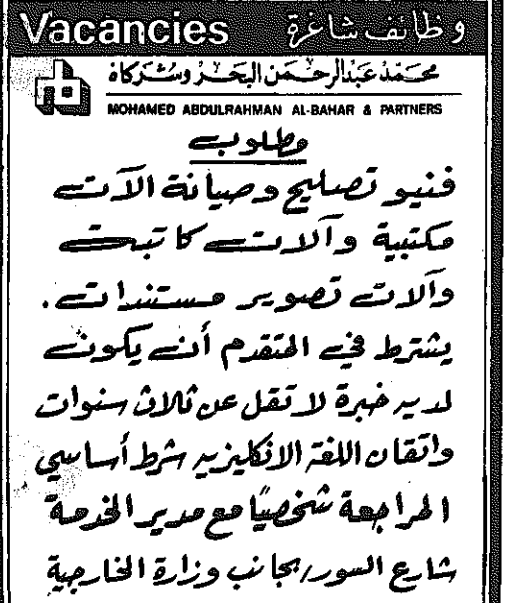 Vacancies وظائف شاغرة
محمد عبدالرحمن البحر وشركاه
MOHAMED ABDULRAHMAN AL-BAHAR & PARTNERS
مطلوب
فنيو تصليح وصيانة الآت
مكتبية وآلات كاتبة
وآلات تصوير مستندات.
يشترط في المتقدم أن يكون
لديه خبرة لا تقل عن ثلاث سنوات
واتقان اللغة الانكليزيه شرط أساسي
المراجعة شخصيًا مع مدير الخدمة
شارع السور، بجانب وزارة الخارجية